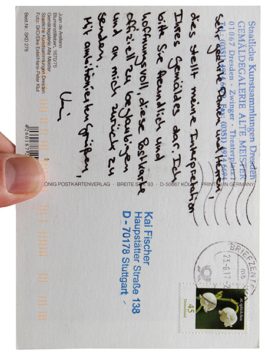 Staatliche Kunstsammlungen Dresden
GEMÄLDEGALERIE ALTE MEISTER
01067 Dresden · Zwinger · Theaterplatz 1
sehr geehrte Damen und Herren,
dies stellt meine Interpretation
Ihres Gemäldes dar. Ich
bitte Sie freundlich und
hoffnungsvoll, diese Postkarte
offiziell zu beglaubigen
und an mich zurück zu
senden.
Mit ambitionierten Grüßen,
Juan de Arellano
Blumenstück
Gemäldegalerie Alte Meister
Staatliche Kunstsammlungen Dresden
KÖNIG POSTKARTENVERLAG · BREITE STR. 93 · D-50667 KÖLN · PRINTED IN GERMANY
Kai Fischer
Hauptstätter Straße 138
D - 70178 Stuttgart
BRIEFZENTRUM
45